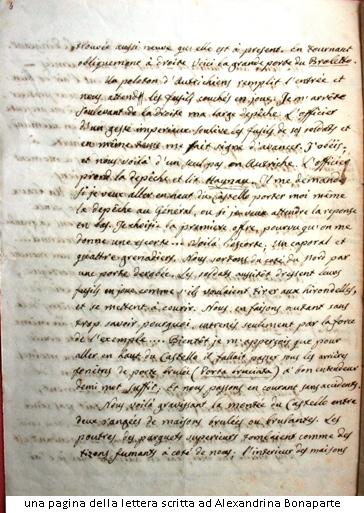 trouvée aussi neuve qu'elle est à présent. en tournant
obliquement à droite voici la grande porte du Broletto.
Un peloton d'Autrichiens remplit l'entrée et
nous attend les fusils couchés en joue. Je m'arrête
soulevant de la droite ma large depêche. L'officier
d'un geste imperieux soulève les fusils de ses soldats et
en même tems me fait signe d'avancer. J'obéis,
et nous voilà d'un seul pas en Autriche. L'officier
prend la depêche et lit Haynau. Il me demande
si je veux aller en haut du Castello porter moi même
la depêche au Général, ou si je veux attendre la reponse
en bas. Je choisis la première offre, pourvu qu'on me
donne une escorte... Voilà l'escorte, un caporal et
quatre grenadiers. Nous sortons du coté du Nord par
une porte derobée. Les soldats aussitôt dressent leurs
fusils en joue comme s'ils voulaient tirer aux hirondelles,
et se mettent à courir. Nous en faisons autant sans
trop savoir pourquoi, entrainés seulement par la force
de l'exemple... Bientôt je m'apperçois que pour
aller en haut du Castello il fallait passer sous les arrières
fenêtres de porte brulée (Porta bruciata) à bon entendeur
demi mot suffit, et nous passons en courant sans accidents.
Nous voilà gravissant la montée du Castello entre
deux rangées de maisons brulées ou brulantes. Les
poutres des parquets superieurs tombaient comme des
tizons fumants à coté de nous. l'interieur des maisons
una pagina della lettera scritta ad Alexandrina Bonaparte